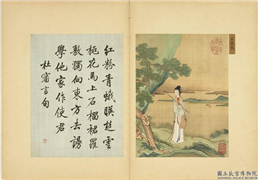 紅粉青蛾暎楚雲
桃花馬上石榴裙羅
敷獨向東方去謾
學他家作使君
杜審言句
國立故宮博物院